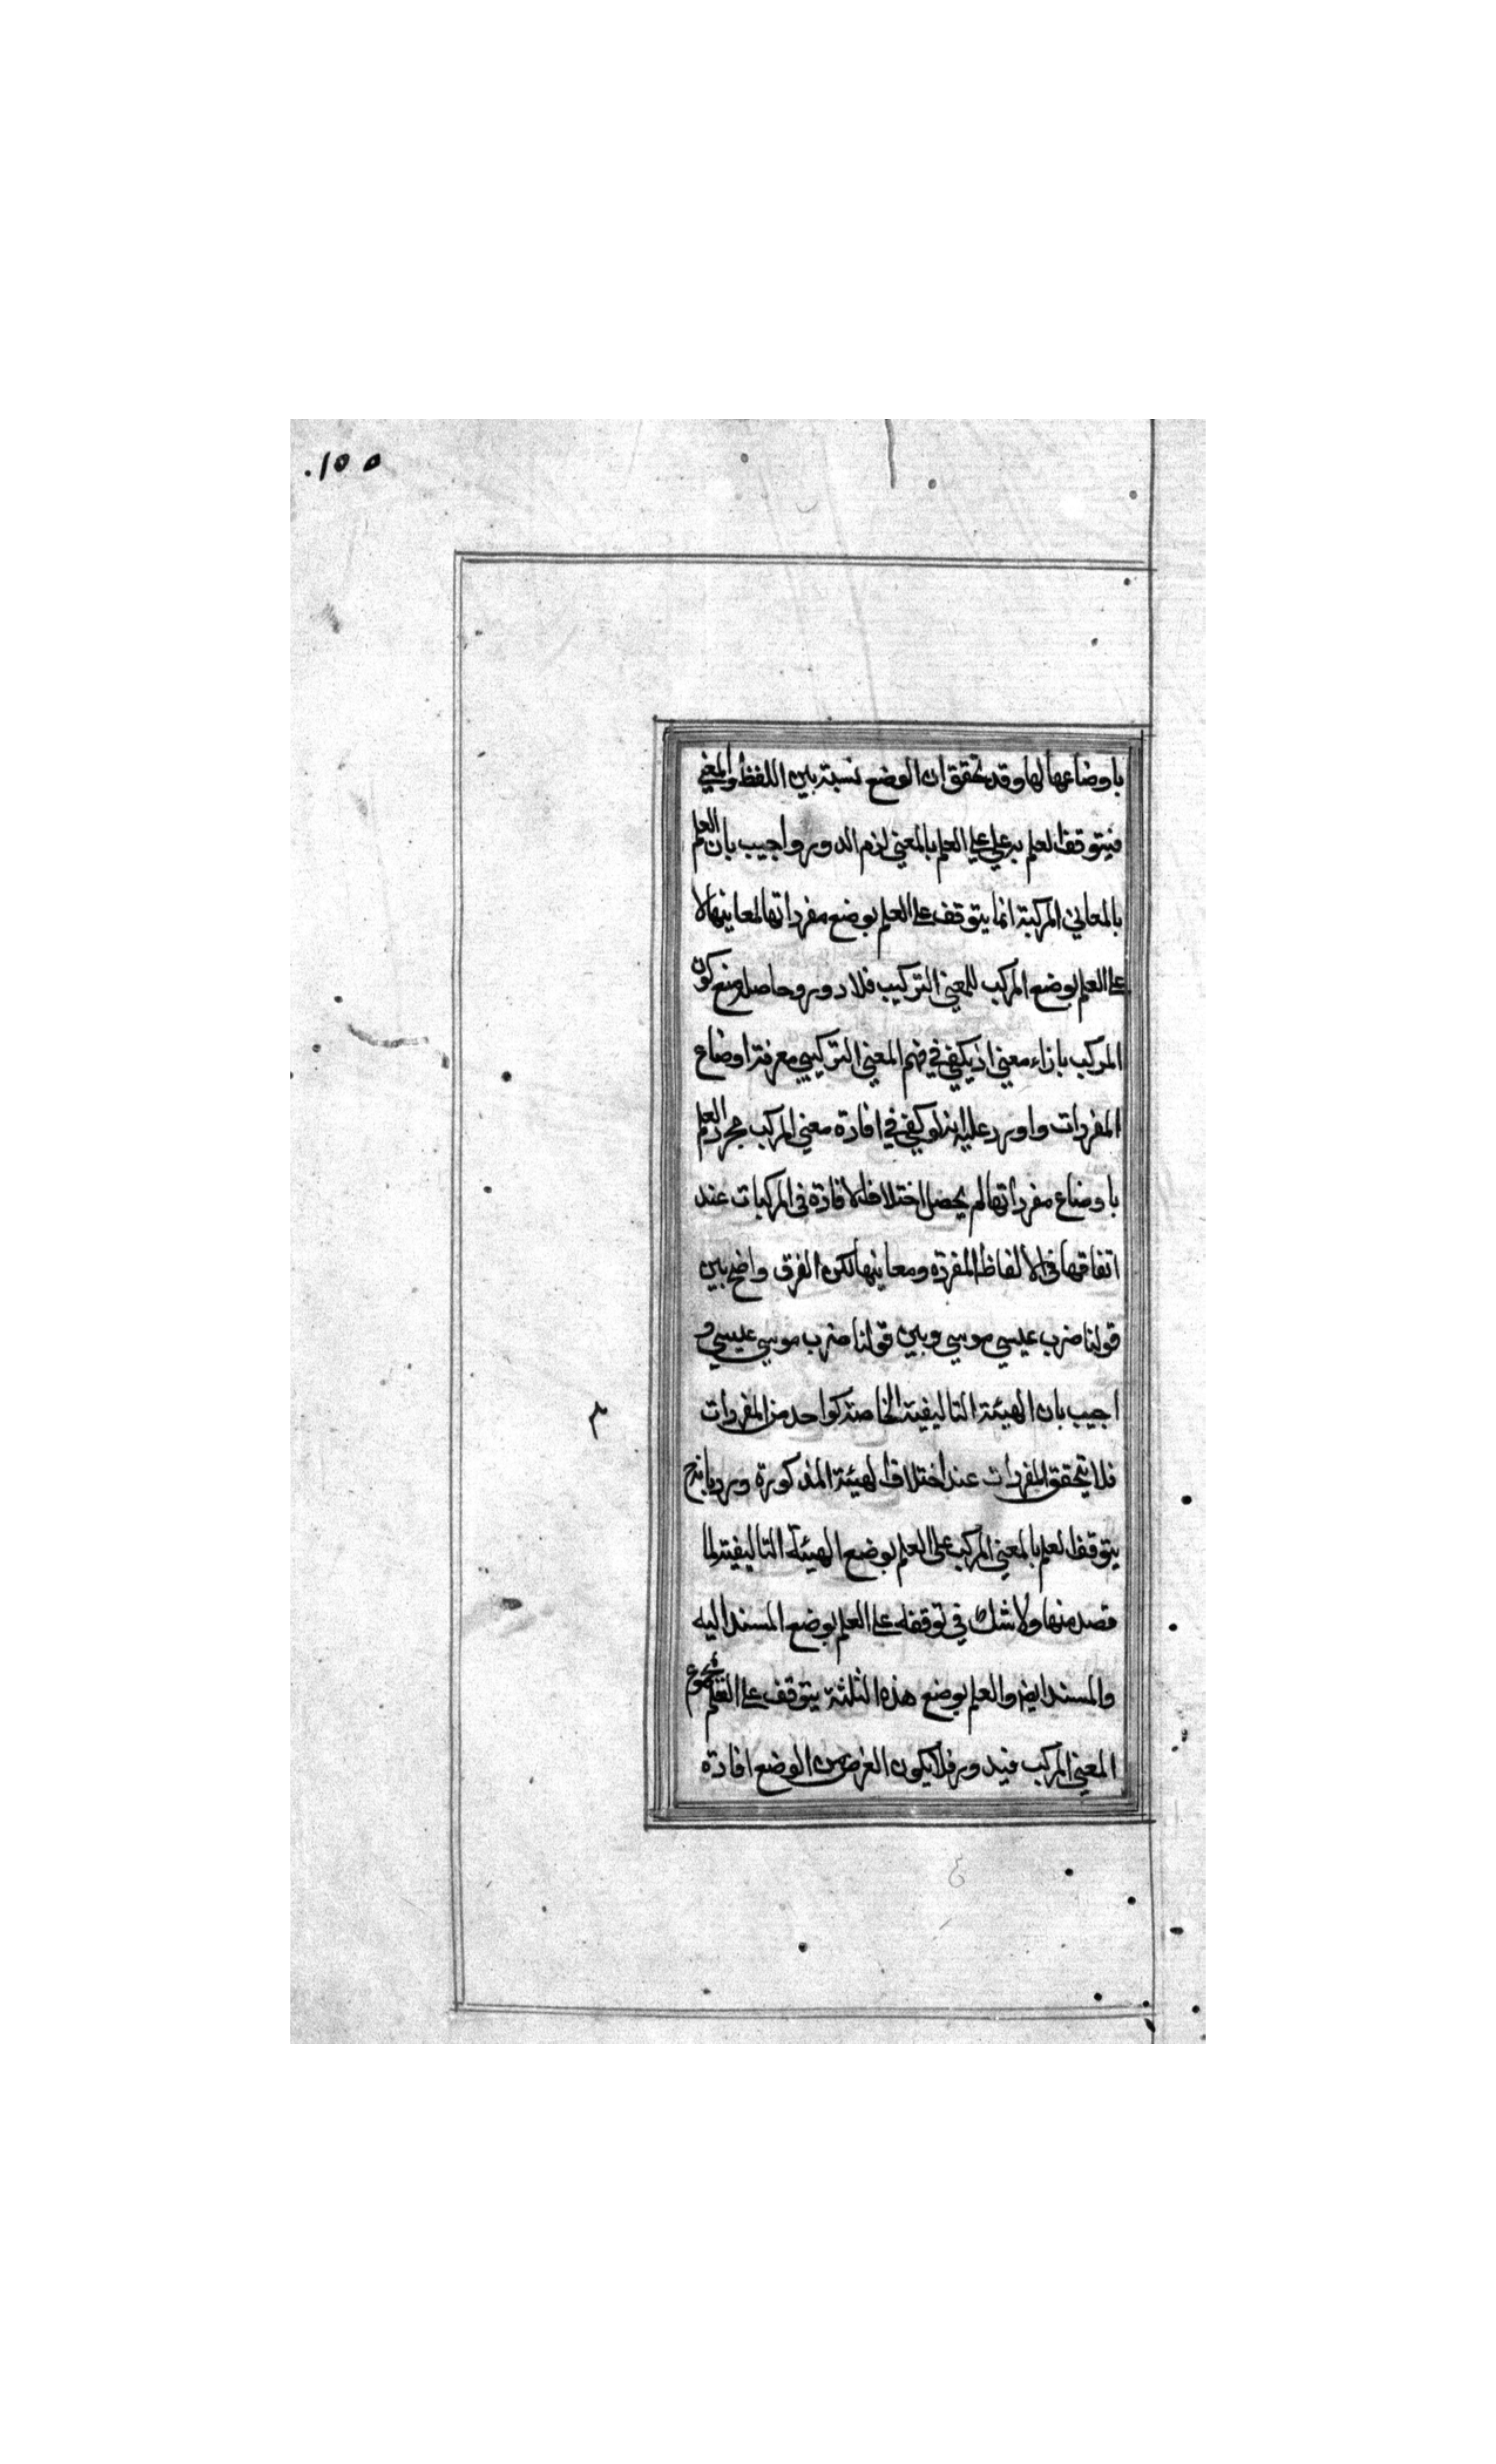 .١٥٥
باوضاعها لها وقد تحقق ان الوضع نسبة بين اللفظ والمعني
فيتوقف العلم به علي العلم بالمعني لزم الدور واجيب بان العلم
بالمعاني المركبة انما يتوقف على العلم بوضع مفرداتها لمعاينها لا
على العلم بوضع المركب للمعني التركيب فلا دور وحاصله منع كون
المركب بازاء معني اذ يكفي في فهم المعني التركيبي معرفة اوضاع
المفردات واورد عليه انه لو كفي في افادة معني المركب مجرد العلم
باوضاع مفرداتها لم يحصل اختلاف الافادة في المركبات عند
اتفاقها في الالفاظ المفردة ومعاينها لكن الفرق واضح بين
قولنا ضرب عيسي موسي وبين قولنا ضرب موسي عيسي و
اجيب بان الهيئة التاليفية الخاصة كواحد من المفردات
فلا يتحقق المفردات عند اختلاف الهيئة المذكورة ورد بانه ح
يتوقف العلم بالمعني المركب على العلم بوضع الهيئة التاليفية لما
قصد منها ولا شك في توقفه على العلم بوضع المسند اليه
والمسند ايض والعلم بوضع هذه الثلثة يتوقف على العلم بمجموع
المعني المركب فيدور فلا يكون الغرض من الوضع افادة